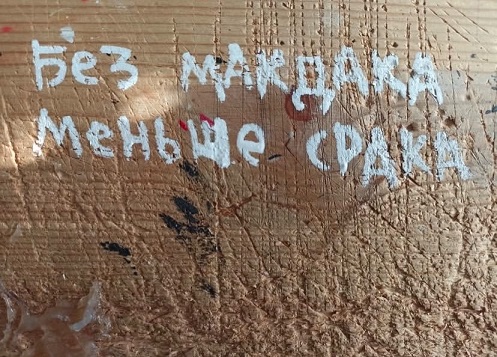 Без макдака
меньше срака